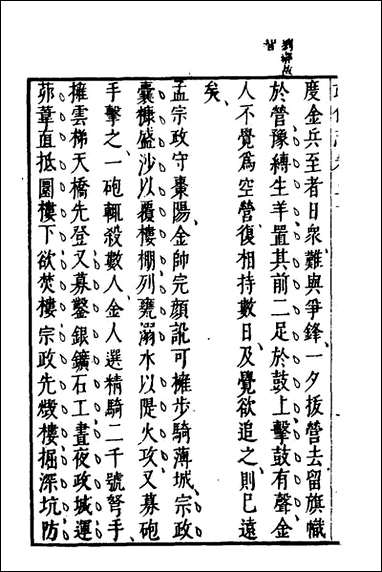 度金兵至者日衆難與爭鋒一夕拔營去留旗幟
於營豫縛生羊置其前二足於鼓上擊鼓有聲金
人不覺爲空營復相持數日及覺欲追之則已遠
矣
孟宗政守棗陽金帥完顏訛可擁步騎薄城宗政
囊糠盛沙以覆樓棚列甕潴水以隄火攻又募砲
手擊之一砲輒殺數人金人選精騎二千號弩手
擁雲梯天橋先登又募鑿銀鑛石工晝夜攻城運
茆葦直抵圜樓下欲焚樓宗政先燬樓掘深坑防